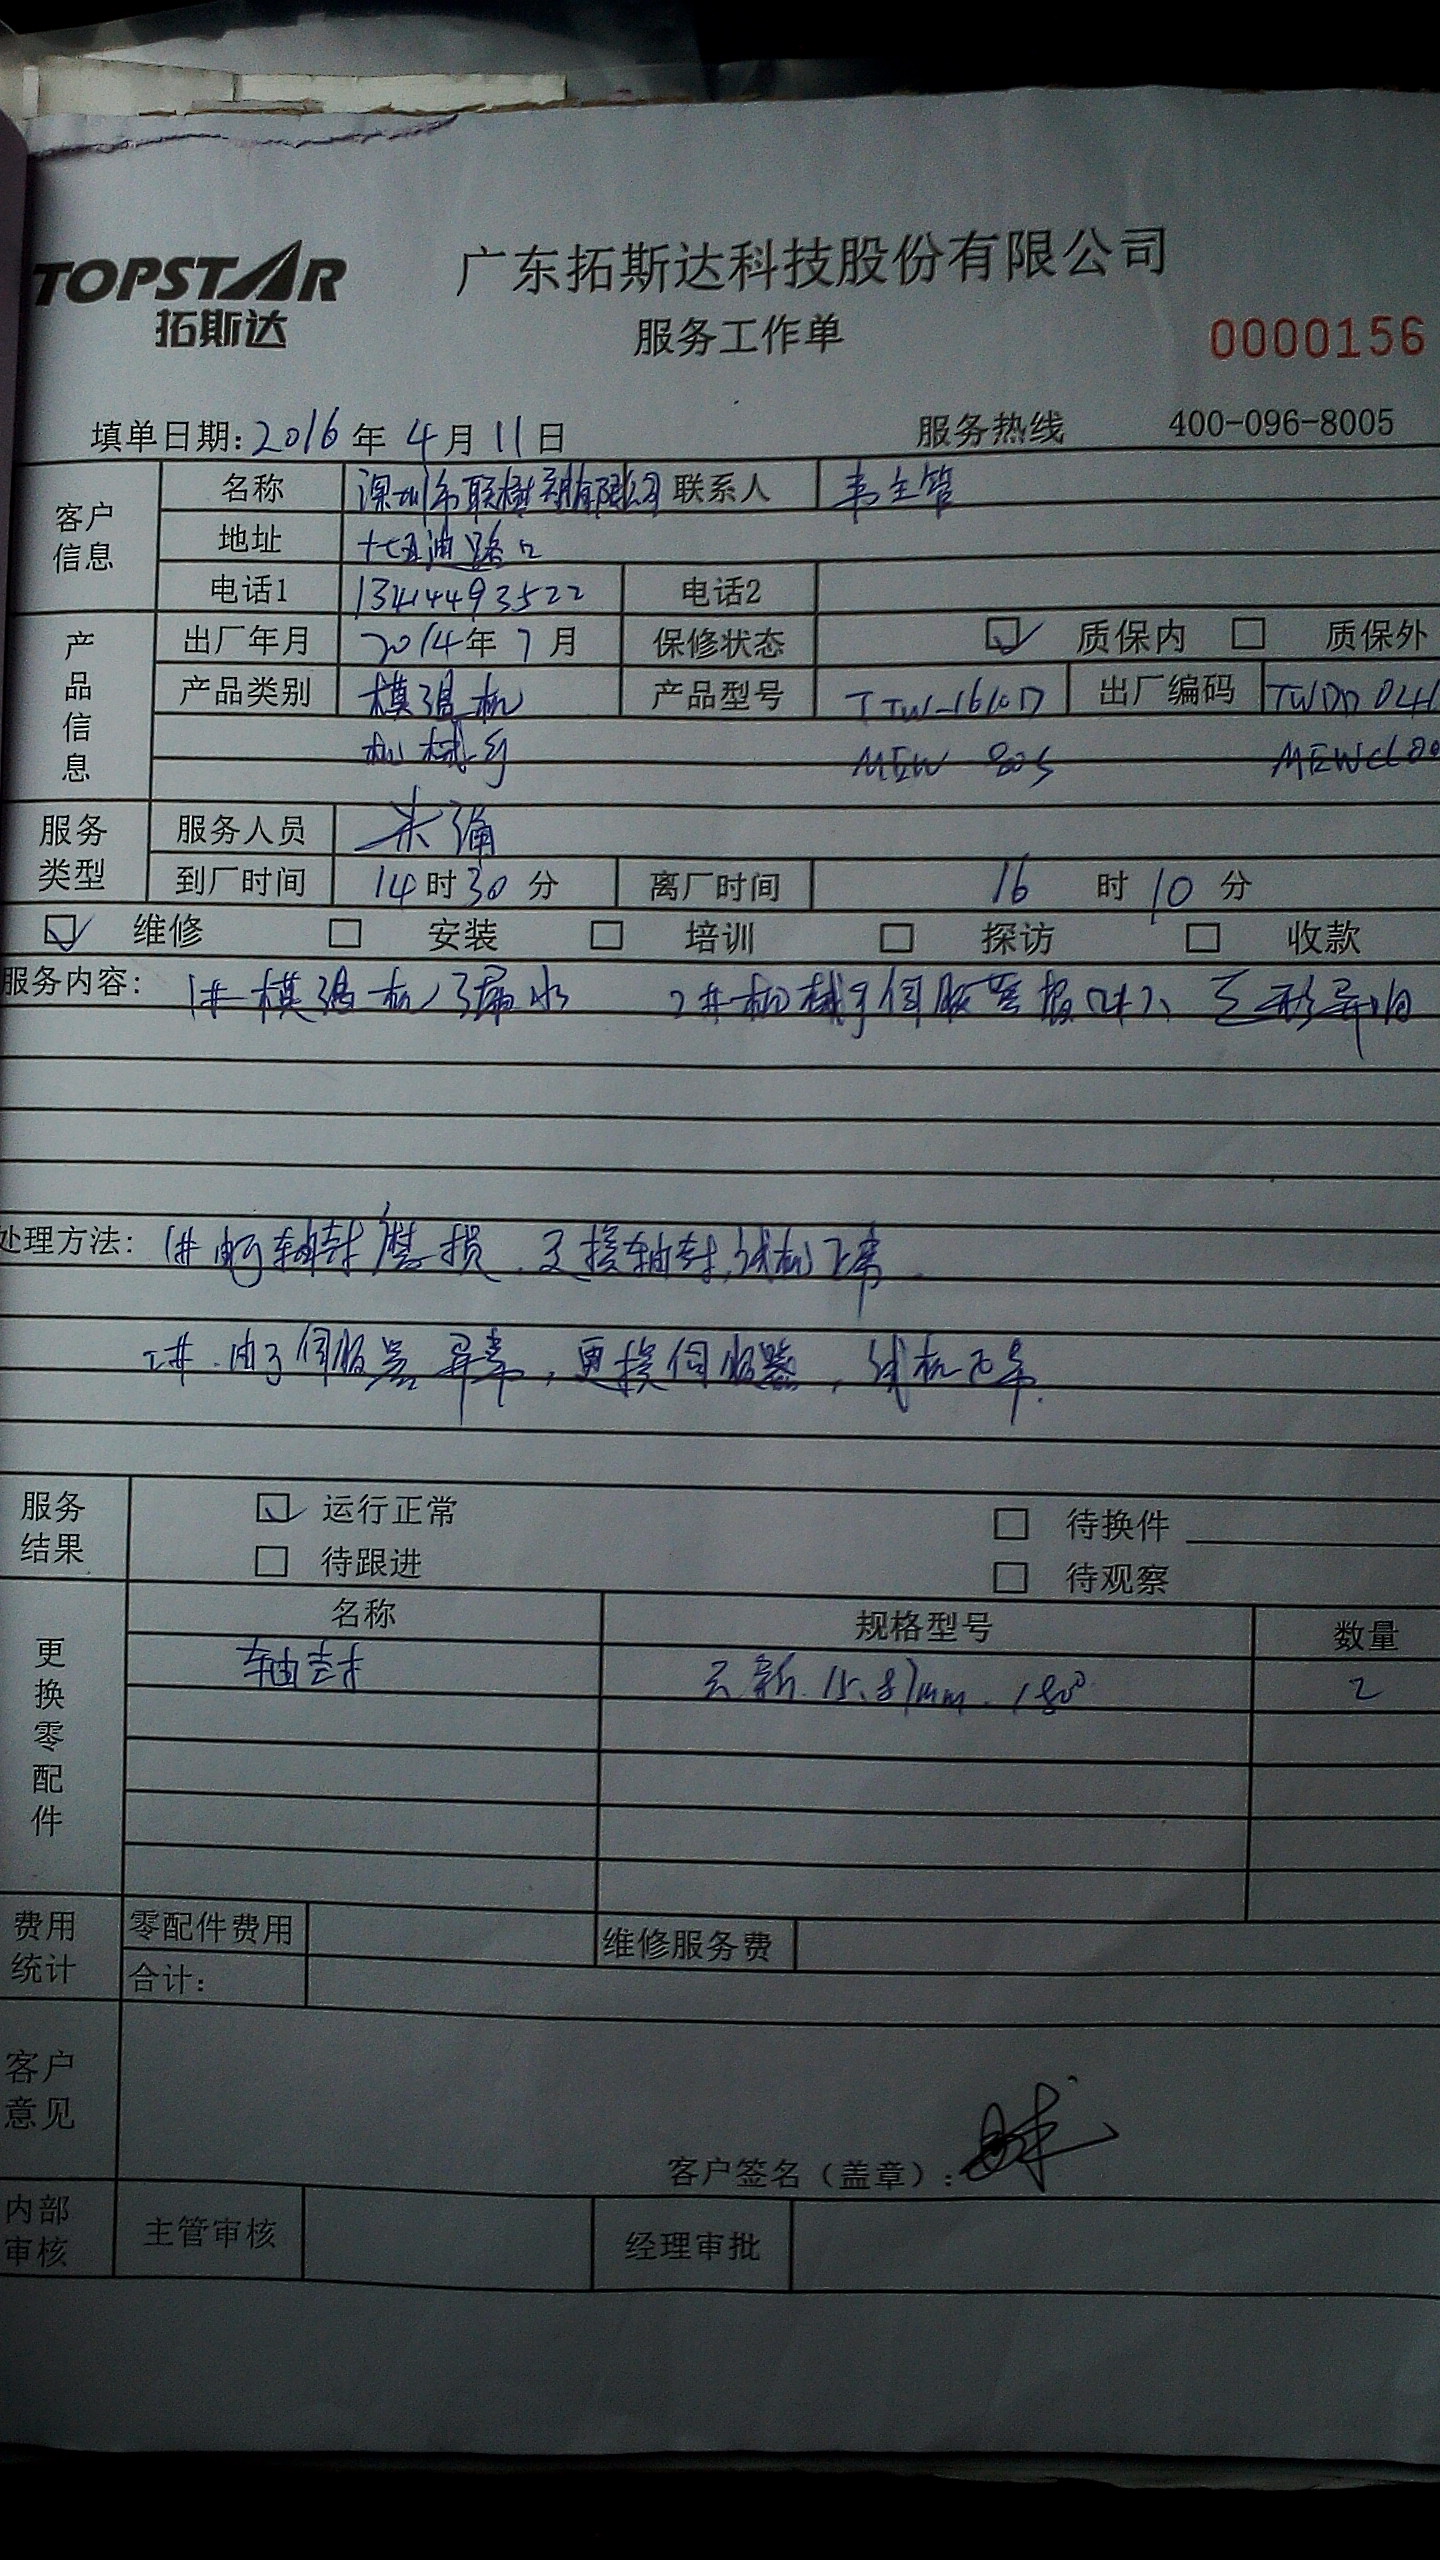 TOPSTAR
拓斯达
广东拓斯达科技股份有限公司
服务工作单
0000156
填单日期: 2016 年 4 月 11 日 服务热线 400-096-8005
客户信息 名称 深圳市联 有限公司 联系人 韦主管
地址 油路口
电话1 13414493522 电话2
产品信息 出厂年月 2014年 7月 保修状态 质保内 质保外
产品类别 模温机 产品型号 TTW-1610D 出厂编码 TWDD 04
机械手 MEW 80S MEWCL80
服务类型 服务人员 朱
到厂时间 14 时 30 分 离厂时间 16 时 10 分
维修 安装 培训 探访 收款
服务内容: 1# 模温机漏水 2# 机械手伺服 报 异响
处理方法: 1# 轴封磨损. 更换轴封,试机正常.
2#. 由于伺服器异常,更换伺服器,试机正常.
服务结果 运行正常 待换件
待跟进 待观察
更换零配件 名称 规格型号 数量
轴封 新 15.87mm. 180° 2
费用统计 零配件费用 维修服务费
合计:
客户意见
客户签名(盖章):
内部审核 主管审核 经理审批